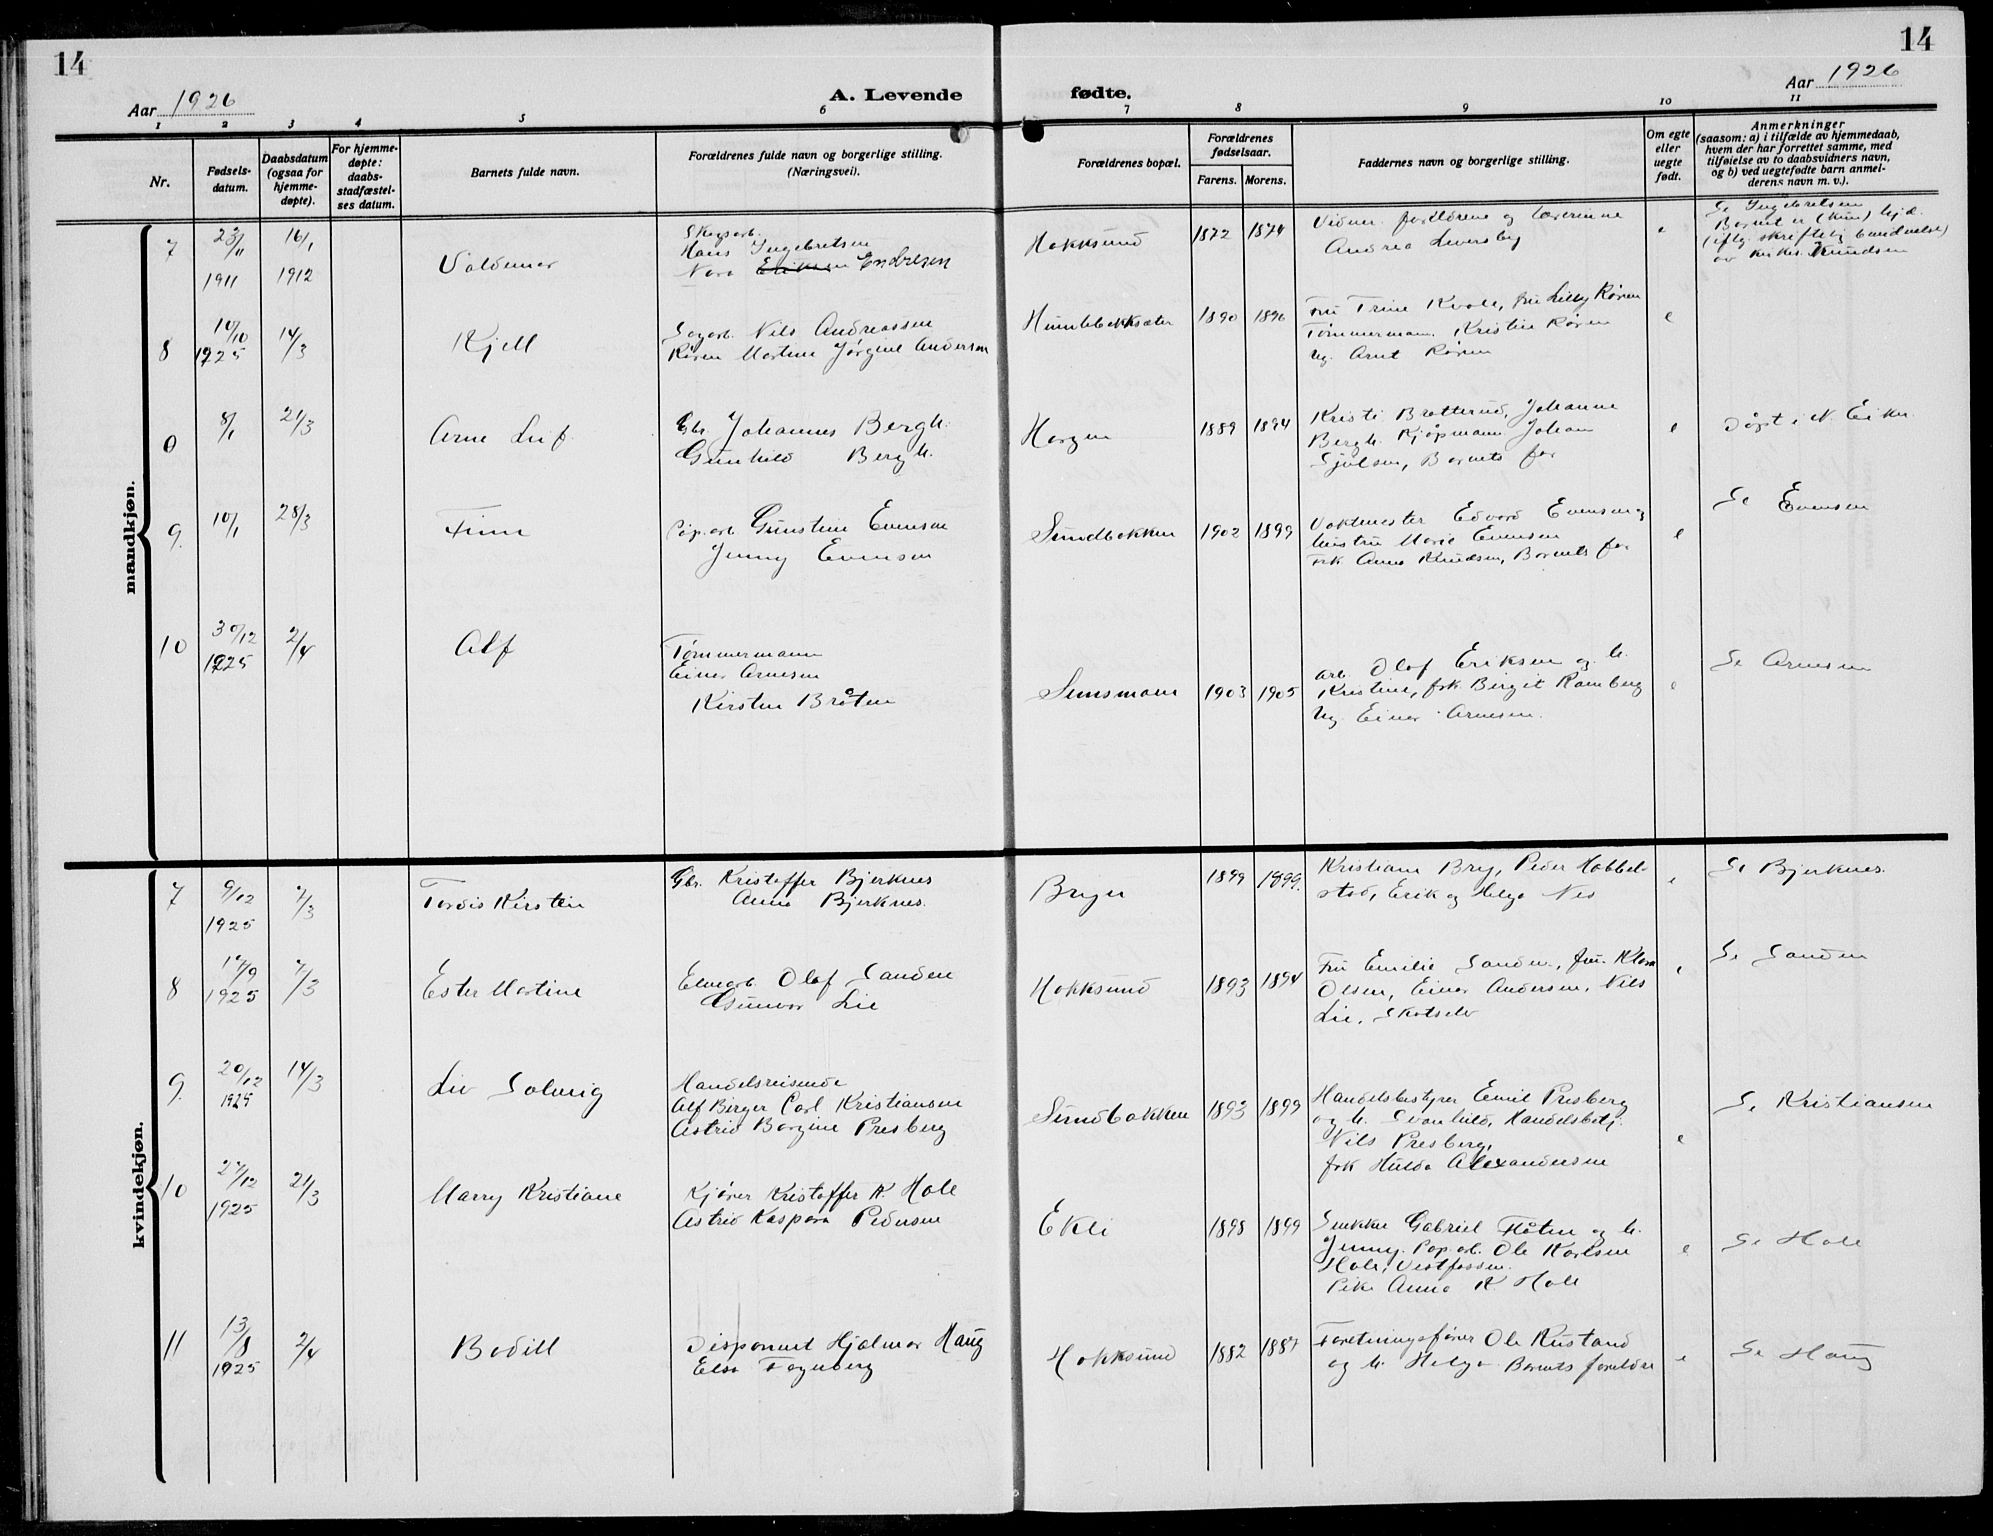 14
14
Aar 1926
A. Levende
fødte.
Aar 1926
1 2 3 4 5 6 7 8 9 10 11
Nr.
Fødsels-
datum.
Daabsdatum
(ogsaa for
hjemme-
døpte).
For hjemme-
døpte:
daabs-
stadfæstel-
ses datum.
Barnets fulde navn.
Forældrenes fulde navn og borgerlige stilling.
(Næringsvei).
Forældrenes bopæl.
Forældrenes
fødselsaar.
Farens. Morens.
Faddernes navn og borgerlige stilling.
Om egte
eller
uegte
født.
Anmerkninger
(saasom: a) i tilfælde av hjemmedaab,
hvem der har forrettet samme, med
tilføielse av to daabsvidners navn,
og b) ved uegtefødte barn anmel-
derens navn m. v.).
mandkjøn.
7
23/11
1911
16/1
1912
Valdemar
Skogsarb.
Hans Ingebretsen
Nora Eriksen Endresen
Hokksund
1872 1874
Vidner: foreldrene og lærerinne
Andrea Liversby
e
Se Ingebretsen
Barnet er (kun) hjd.
av Knudsen
8
10/10
1925
14/3
Kjell
Sagarb. Nils Andreassen
Røren Martine Jørgine Andersen
Humleboksæter
1890 1896
Fru Trine Kvale, fru Lilly Røren
Tømmermann Kristin Røren
Ug. Arnt Røren
e
0
8/1
21/3
Arne Leif
Gbr. Johannes Bergh.
Gunhild Bergh.
Horgen
1889 1894
Kristi Bratterud, Johanne
Bergh. Kjøpmann Johan
Sjulsen, Barnets far
e
Døpt i N. Eiker
9
10/1
28/3
Finn
Pap.arb. Gunstein Evensen
Jenny Evensen
Sundbakken
1902 1899
Vaktmester Edvard Evensen og
hustru Marie Evensen
Frk Anna Knudsen, Barnets far
e
Se Evensen
10
30/12
1925
2/4
Alf
Tømmermann
Einar Arnesen
Kirsten Bråten
Semsmoen
1903 1905
Arb. Olaf Eriksen og h.
Kristine, frk. Birgit Ramberg
Ug. Einar Arnesen.
e
Se Arnesen
kvindekjøn.
7
9/12
1925
7/3
Tordis Kirsten
Gbr. Kristoffer Bjerknes
Anna Bjerknes.
Bryn
1899 1899.
Kristiane Bry, Peder Hobbel-
stad, Erik og Helga Nes
e
Se Bjerknes.
8
17/9
1925
7/3
Ester Martine
Elvearb. Olaf Sanden
Gunvor Lie
Hokksund
1893 1894
Fru Emilie Sanden, fru Klara
Olsen, Einar Andersen, Nils
Lie, Skotselv
e
Se Sanden
9
20/12
1925
14/3
Liv Solveig
Handelsreisende
Alf Birger Carl Kristiansen
Astrid Borgine Presberg
Sundbakken
1893 1899
Handelsbestyrer Emil Presberg
og h. Svanhild, Handelsbetj.
Nils Presberg,
frk Hulda Alexandersen
e
Se Kristiansen
10
27/12
1925
21/3
Marry Kristiane
Kjører Kristoffer K. Hole
Astrid Kaspara Pedersen
Ekli
1898 1899
Snekker Gabriel Flåten og h.
Jenny. Pap.arb. Ole Karlsen
Hole, Vestfossen.
Pike Anna K. Hole
e
Se Hole
11
13/8
1925
2/4
Bodill
Disponent Hjalmar Haug
Elsa Fagerberg
Hokksund
1882 1887
Forretningsfører Ole Rustand
og h. Helga Barnets foreldre
e
Se Haug